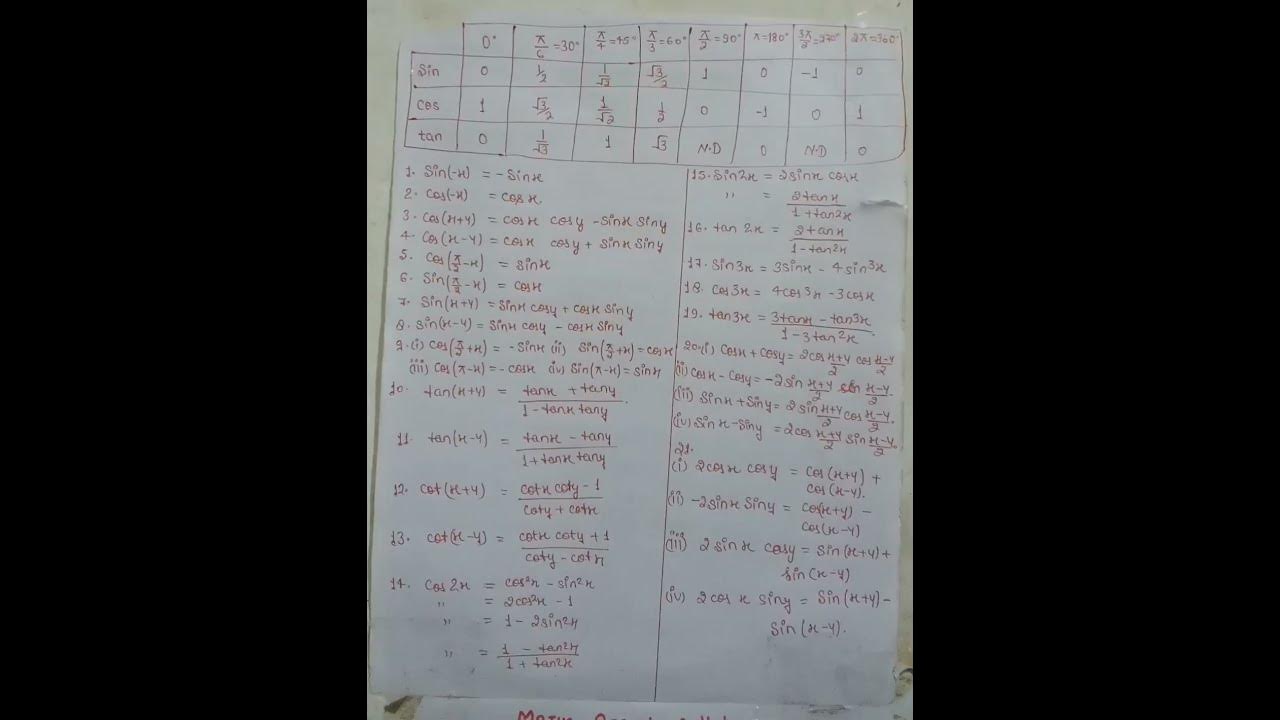 0° π/6=30° π/4=45° π/3=60° π/2=90° π=180° 3π/2=270° 2π=360°
Sin 0 1/2 1/√2 √3/2 1 0 -1 0
cos 1 √3/2 1/√2 1/2 0 -1 0 1
tan 0 1/√3 1 √3 N.D 0 N.D 0
1. Sin(-x) = -Sinx
2. cos(-x) = cosx
3. cos(x+y) = cosx cosy -sinx siny
4. Cos(x-y) = cosx cosy + sinx siny
5. Cos(π/2-x) = sinx
6. Sin(π/2-x) = cosx
7. Sin(x+y) = sinx cosy + cosx siny
8. sin(x-y) = sinx cosy - cosx siny
9. (i) cos(π/2+x) = -sinx (ii) sin(π/2+x) = cosx
(iii) Cos(π-x) = -cosx (iv) Sin(π-x) = sinx
10. tan(x+y) = tanx + tany / 1-tanx tany.
11. tan(x-y) = tanx - tany / 1+tanx tany
12. cot(x+y) = cotx coty - 1 / coty + cotx
13. cot(x-y) = cotx coty + 1 / coty - cotx
14. Cos2x = cos²x - sin²x
" = 2cos²x - 1
" = 1 - 2sin²x
" = 1 - tan²x / 1 + tan²x
15. Sin2x = 2sinx cosx
" = 2tanx / 1+tan2x
16. tan 2x = 2tanx / 1-tan²x
17. Sin3x = 3sinx - 4sin³x
18. cos3x = 4cos³x - 3cosx
19. tan3x = 3tanx - tan3x / 1-3tan²x
20. (i) cosx + cosy = 2cos x+y/2 cos x-y/2
(ii) cosx - cosy = -2sin x+y/2 sin x-y/2.
(iii) sinx + siny = 2sin x+y/2 cos x-y/2.
(iv) sinx - siny = 2cos x+y/2 sin x-y/2.
21.
(i) 2cosx cosy = cos(x+y) +
cos(x-y).
(ii) -2sinx siny = cos(x+y) -
cos(x-y)
(iii) 2sinx cosy = sin(x+y) +
sin(x-y)
(iv) 2cos x siny = Sin(x+y) -
Sin(x-y).